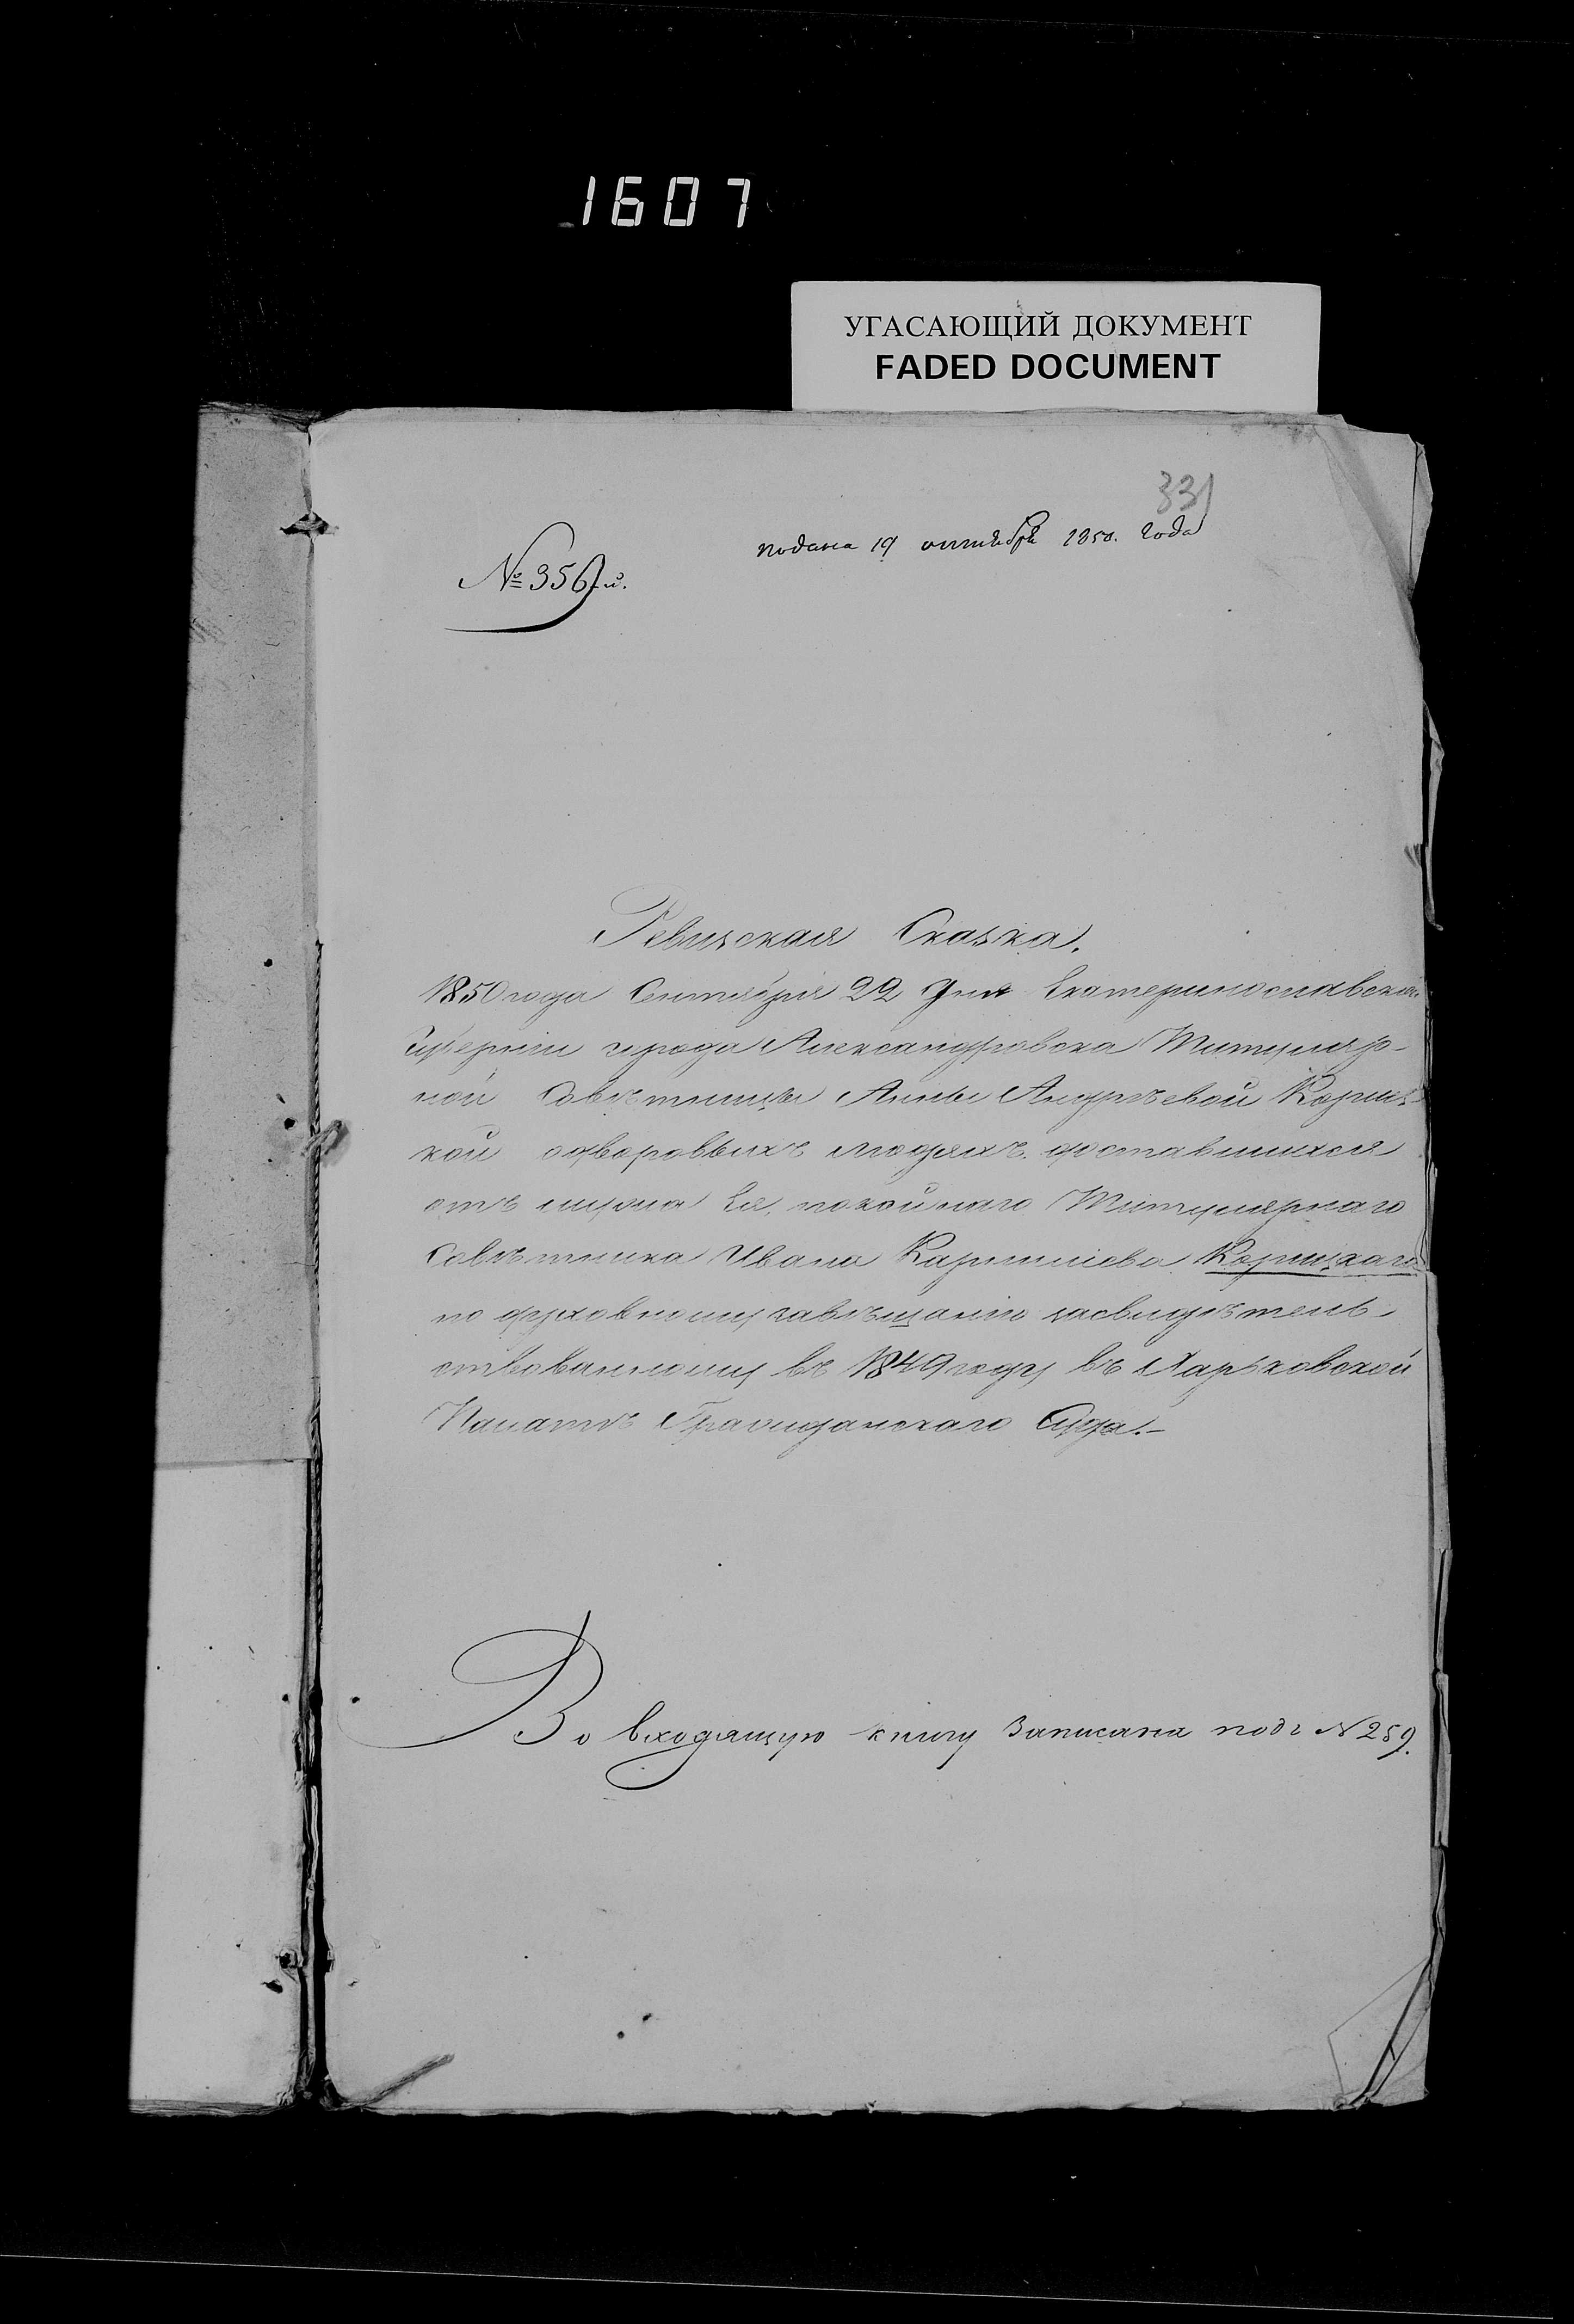 1607
УГАСАЮЩИЙ ДОКУМЕНТ
FADED DOCUMENT
331
подана 19 октября 1850. года
№ 356-й.
Ревизская Сказка.
1850 года Сентября 22 дня Екатеринославской
Губерніи города Александровска Титуляр-
ной Совѣтницы Анны Андрѣевой
кой одворовыхъ людяхъ доставшихся
отъ мужа Ея, покойнаго Титулярнаго
Совѣтника Ивана
по духовному завѣщанію засвидѣтель-
ствованному въ 1849 году въ Харьковской
Палатѣ Гражданскаго Суда.-
Во входящую книгу записана подъ № 259.